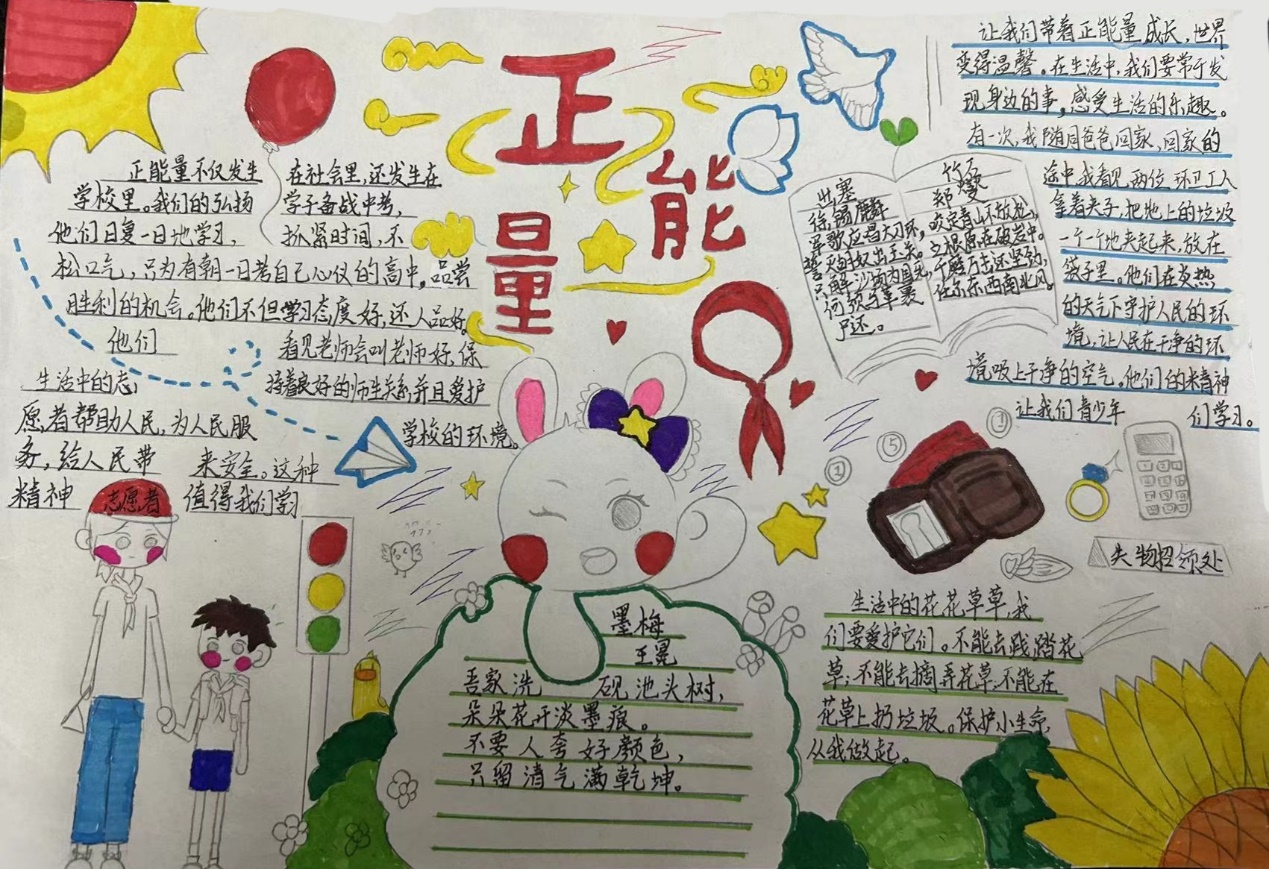 正能量
正能量不仅发生在社会里,还发生在
学校里。我们的弘扬学子备战中考,
他们日复一日地学习,抓紧时间,不
松口气,只为有朝一日考自己心仪的高中,品尝
胜利的机会。他们不但学习态度好,还人品好。
他们看见老师会叫老师好,保
持着良好的师生关系,并且爱护
学校的环境。
生活中的志
愿者帮助人民,为人民服
务,给人民带来安全。这种
精神值得我们学习
志愿者
出塞
徐锡麟
军歌应唱大刀环,
誓灭胡奴出玉关。
只解沙场为国死,
何须马革裹
尸还。
竹石
郑燮
咬定青山不放松,
立根原在破岩中。
千磨万击还坚劲,
任尔东西南北风。
让我们带着正能量成长,世界
变得温馨。在生活中,我们要常于发
现身边的事,感受生活的乐趣。
有一次,我随同爸爸回家,回家的
途中我看见两位环卫工人
拿着夹子,把地上的垃圾
一个个地夹起来,放在
袋子里。他们在炎热
的天气下守护人民的环
境,让人民在干净的环
境吸上干净的空气。他们的精神
让我们青少年们学习。
①
⑤
③
失物招领处
墨梅
王冕
吾家洗砚池头树,
朵朵花开淡墨痕。
不要人夸好颜色,
只留清气满乾坤。
生活中的花花草草,我
们要爱护它们。不能去践踏花
草;不能去摘弄花草,不能在
花草上扔垃圾。保护小生命
从我做起。